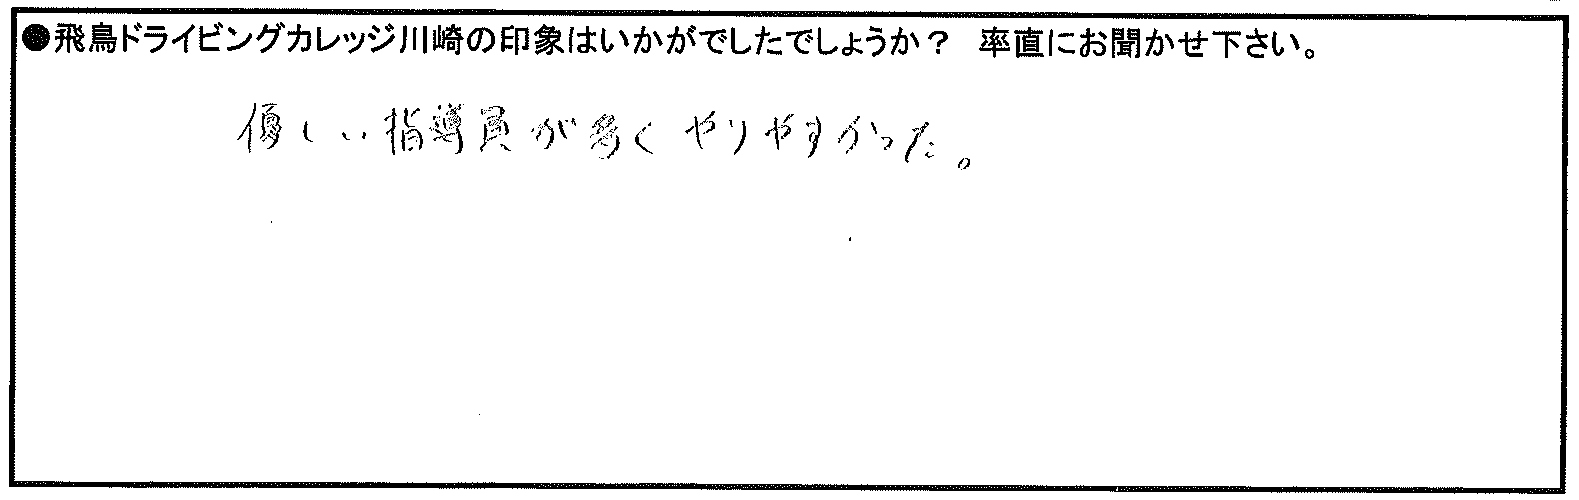 ●飛鳥ドライビングカレッジ川崎の印象はいかがでしたでしょうか？　率直にお聞かせ下さい。
優しい指導員が多くやりやすかった。